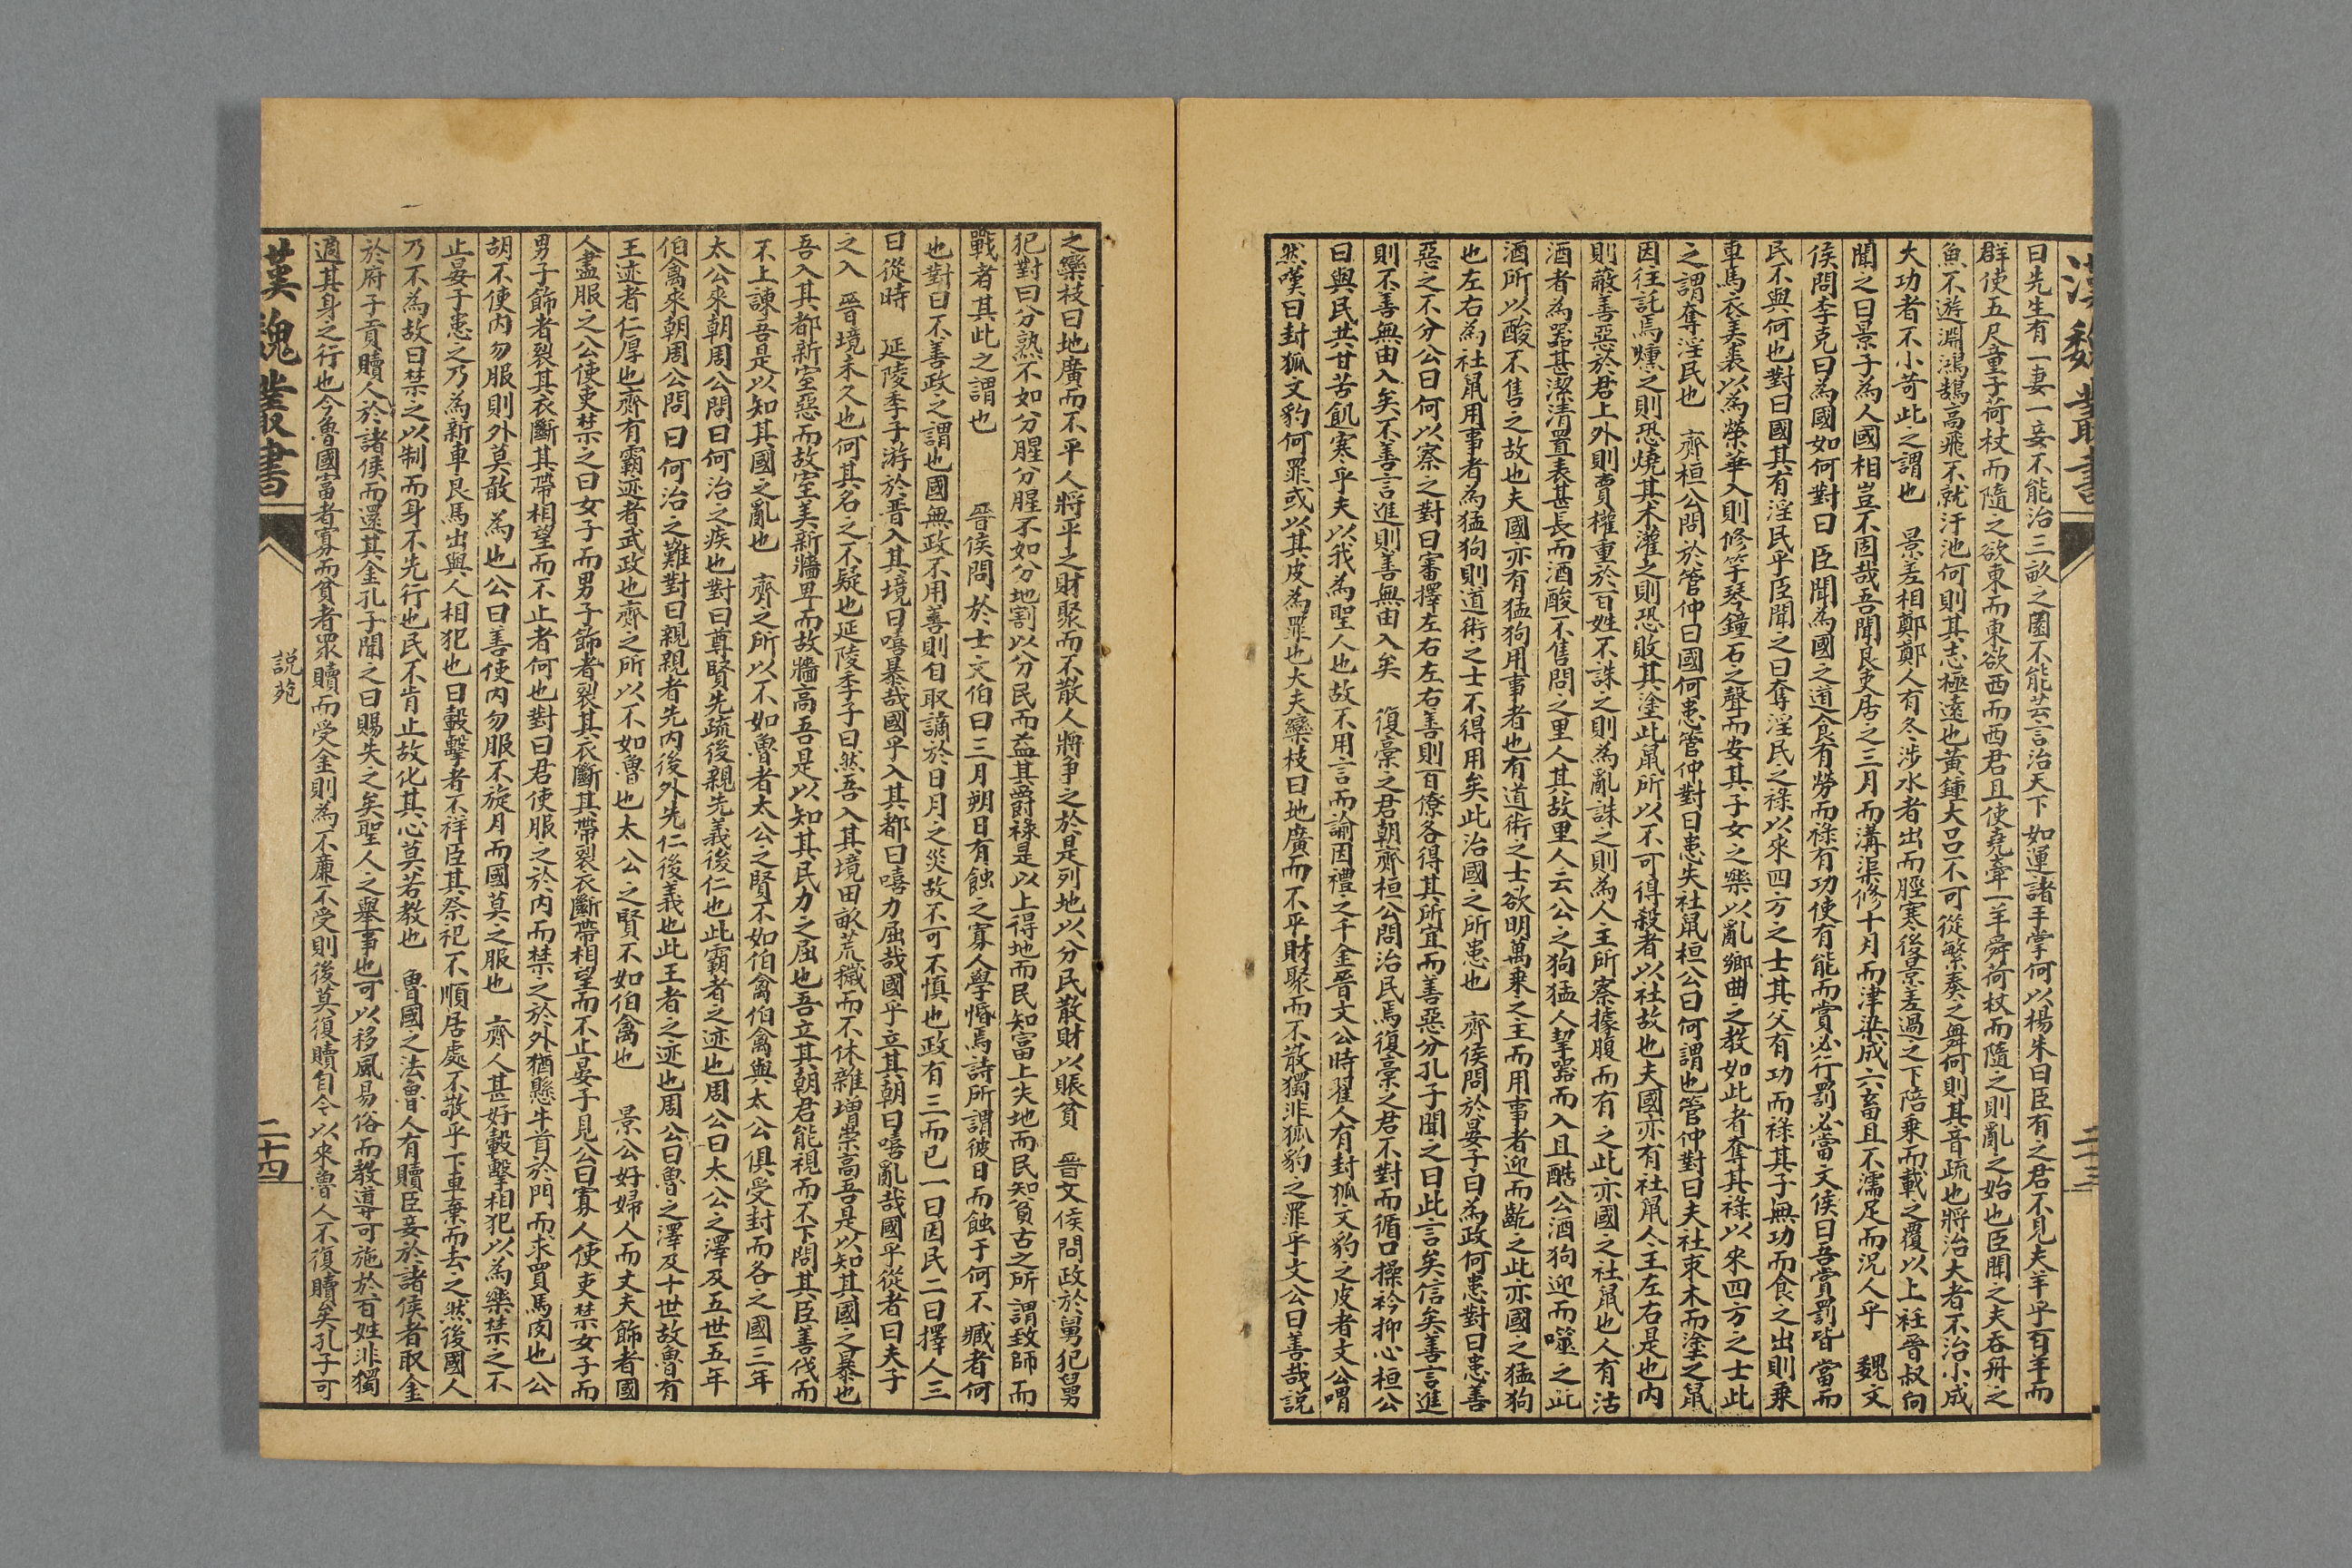 漢魏叢書
二十三
曰先生有一妻一妾不能治三畝之園不能芸言治天下如運諸手掌何以楊朱曰臣有之君不見夫羊乎百羊而
群使五尺童子荷杖而隨之欲東而東欲西而西君且使堯牽一羊舜荷杖而隨之則亂之始也臣聞之夫吞舟之
魚不遊淵鴻鵠高飛不就汙池何則其志極遠也黃鍾大呂不可從繁奏之舞何則其音疏也將治大者不治小成
大功者不小苛此之謂也　景差相鄭鄭人有冬涉水者出而脛寒後景差過之下陪乘而載之覆以上衽晉叔向
聞之曰景子為人國相豈不固哉吾聞良吏居之三月而溝渠修十月而津梁成六畜且不濡足而況人乎　魏文
侯問李克曰為國如何對曰臣聞為國之道食有勞而祿有功使有能而賞必行罰必當文侯曰吾賞罰皆當而
民不與何也對曰國其有淫民乎臣聞之曰奪淫民之祿以來四方之士其父有功而祿其子無功而食之出則乘
車馬衣美裘以為榮華入則修竽琴鐘石之聲而安其子女之樂以亂鄉曲之教如此者奪其祿以來四方之士此
之謂奪淫民也　齊桓公問於管仲曰國何患管仲對曰患夫社鼠桓公曰何謂也管仲對曰夫社束木而塗之鼠
因往託焉燻之則恐燒其木灌之則恐敗其塗此鼠所以不可得殺者以社故也夫國亦有社鼠人主左右是也內
則蔽善惡於君上外則賣權重於百姓不誅之則為亂誅之則為人主所察據腹而有之此亦國之社鼠也人有沽
酒者為器甚潔清置表甚長而酒酸不售問之里人其故里人云公之狗猛人挈器而入且酤公酒狗迎而噬之此
酒所以酸不售之故也夫國亦有猛狗用事者也有道術之士欲明萬乘之主而用事者迎而齕之此亦國之猛狗
也左右為社鼠用事者為猛狗則道術之士不得用矣此治國之所患也　齊侯問於晏子曰為政何患對曰患善
惡之不分公曰何以察之對曰審擇左右左右善則百僚各得其所宜而善惡分孔子聞之曰此言矣信矣善言進
則不善無由入矣不善言進則善無由入矣　復稾之君朝齊桓公問治民焉復稾之君不對而循口操衿抑心桓公
曰與民共甘苦飢寒乎夫以我為聖人也故不用言而諭因禮之千金晉文公時翟人有封狐文豹之皮者文公喟
然嘆曰封狐文豹何罪或以其皮為罪也大夫欒枝曰地廣而不平財聚而不散獨非狐豹之罪乎文公曰善哉說
之欒枝曰地廣而不平人將平之財聚而不散人將爭之於是列地以分民散財以賑貧　晉文侯問政於舅犯舅
犯對曰分熟不如分腥分腥不如分地割以分民而益其爵祿是以上得地而民知富上失地而民知貧古之所謂致師而
戰者其此之謂也　晉侯問於士文伯曰三月朔日有蝕之寡人學惛焉詩所謂彼日而蝕于何不臧者何
也對曰不善政之謂也國無政不用善則自取謫於日月之災故不可不慎也政有三而已一曰因民二曰擇人三
曰從時　延陵季子游於晉入其境曰嘻暴哉國乎入其都曰嘻力屈哉國乎立其朝曰嘻亂哉國乎從者曰夫子
之入　晉境未久也何其名之不疑也延陵季子曰然吾入其境田畝荒穢而不休雜增崇高吾是以知其國之暴也
吾入其都新室惡而故室美新牆卑而故牆高吾是以知其民力之屈也吾立其朝君能視而不下問其臣善伐而
不上諫吾是以知其國之亂也　齊之所以不如魯者太公之賢不如伯禽伯禽與太公俱受封而各之國三年
太公來朝周公問曰何治之疾也對曰尊賢先疏後親先義後仁也此霸者之迹也周公曰太公之澤及五世五年
伯禽來朝周公問曰何治之難對曰親親者先內後外先仁後義也此王者之迹也周公曰魯之澤及十世故魯有
王迹者仁厚也齊有霸迹者武政也齊之所以不如魯也太公之賢不如伯禽也　景公好婦人而丈夫飾者國
人盡服之公使吏禁之曰女子而男子飾者裂其衣斷其帶裂衣斷帶相望而不止晏子見公曰寡人使吏禁女子而
男子飾者裂其衣斷其帶相望而不止者何也對曰君使服之於內而禁之於外猶懸牛首於門而求買馬肉也公
胡不使內勿服則外莫敢為也公曰善使內勿服不旋月而國莫之服也　齊人甚好轂擊相犯以為樂禁之不
止晏子患之乃為新車良馬出與人相犯也曰轂擊者不祥臣其祭祀不順居處不敬乎下車棄而去之然後國人
乃不為故曰禁之以制而身不先行也民不肯止故化其心莫若教也　魯國之法魯人有贖臣妾於諸侯者取金
於府子貢贖人於諸侯而還其金孔子聞之曰賜失之矣聖人之舉事也可以移風易俗而教導可施於百姓非獨
適其身之行也今魯國富者寡而貧者眾贖而受金則為不廉不受則後莫復贖自今以來魯人不復贖矣孔子可
漢魏叢書
說苑
二十四